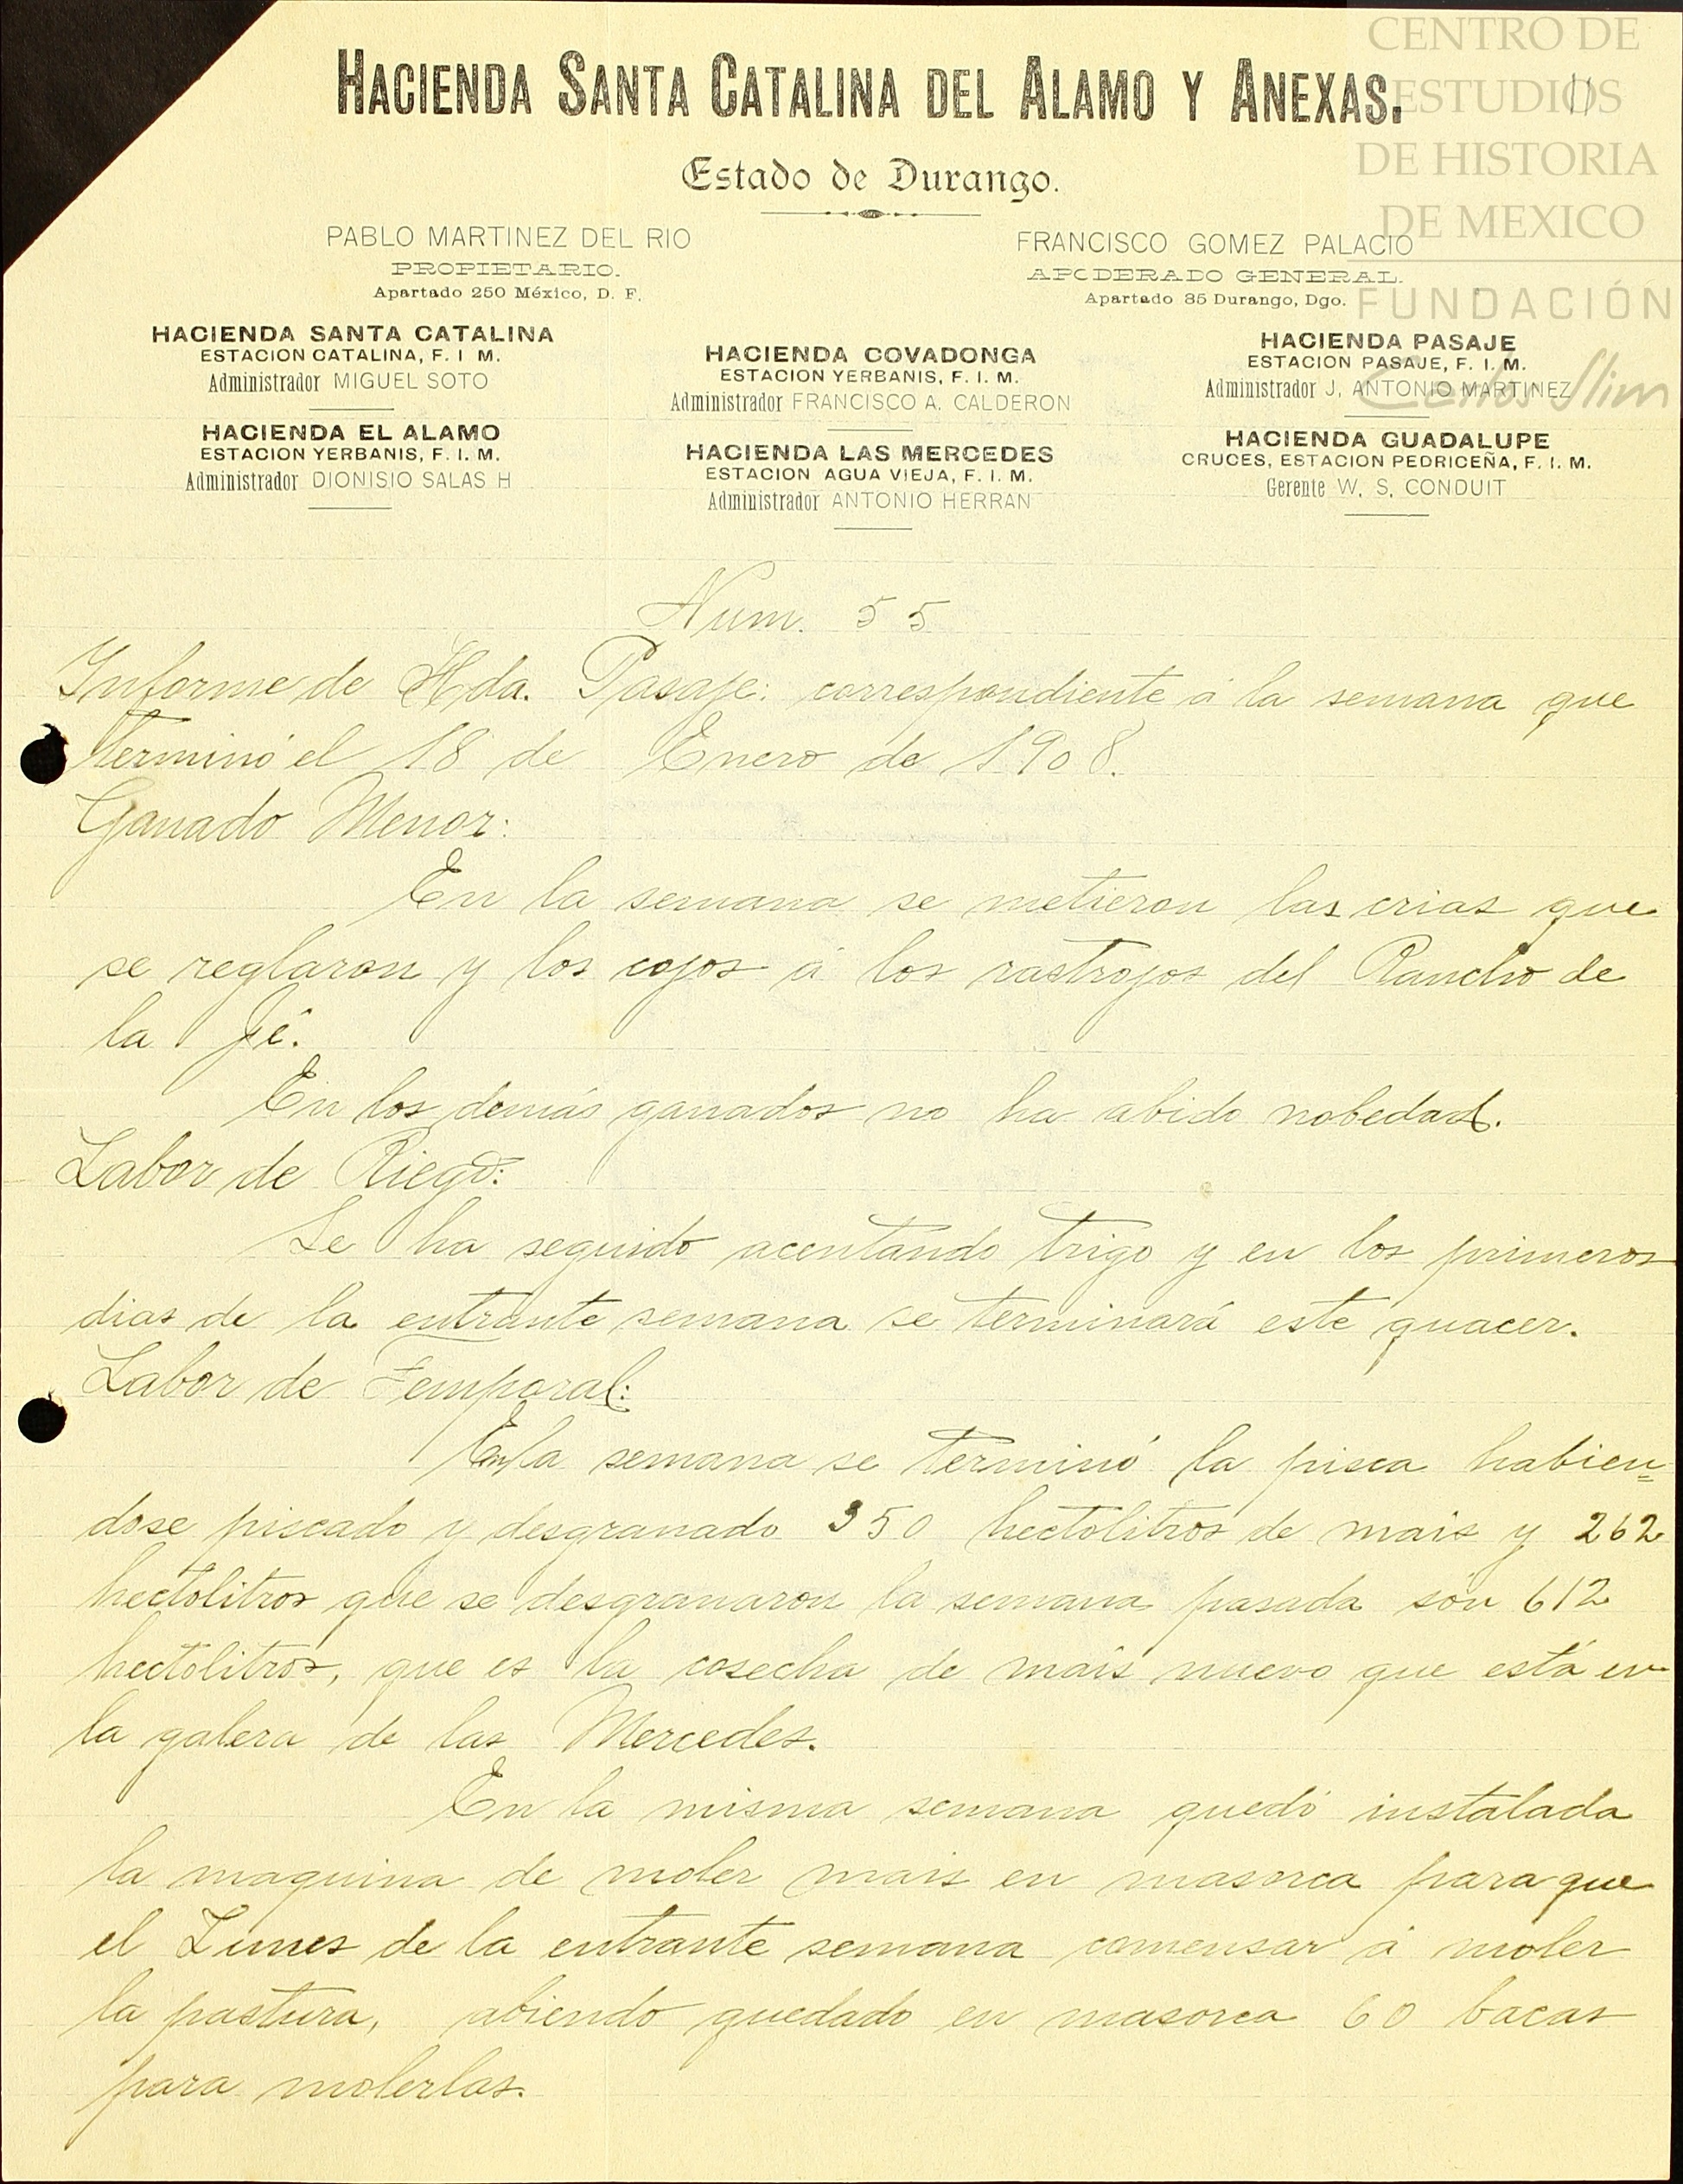 CENTRO DE
ESTUDIOS
DE HISTORIA
DE MEXICO
FUNDACIÓN
Carlos Slim
11
HACIENDA SANTA CATALINA DEL ALAMO Y ANEXAS.
Estado de Durango.
PABLO MARTINEZ DEL RIO
PROPIETARIO.
Apartado 250 México, D. F.
FRANCISCO GOMEZ PALACIO
APODERADO GENERAL.
Apartado 85 Durango, Dgo.
HACIENDA SANTA CATALINA
ESTACION CATALINA, F. I M.
Administrador MIGUEL SOTO
HACIENDA EL ALAMO
ESTACION YERBANIS, F. I. M.
Administrador DIONISIO SALAS H
HACIENDA COVADONGA
ESTACION YERBANIS, F. I. M.
Administrador FRANCISCO A. CALDERON
HACIENDA LAS MERCEDES
ESTACION AGUA VIEJA, F. I. M.
Administrador ANTONIO HERRAN
HACIENDA PASAJE
ESTACION PASAJE, F. I. M.
Administrador J. ANTONIO MARTINEZ
HACIENDA GUADALUPE
CRUCES, ESTACION PEDRICEÑA, F. I. M.
Gerente W. S. CONDUIT
Num. 55
Informe de Hda. Pasaje: correspondiente á la semana que
terminó el 18 de Enero de 1908.
Ganado Menor:
En la semana se metieron las crias que
se reglaron y los cojos á los rastrojos del Rancho de
la fé.
En los demás ganados no ha abido nobedad.
Labor de Riego:
Se ha seguido acentando trigo y en los primeros
dias de la entrante semana se terminará este quacer.
Labor de Temporal:
En la semana se terminó la pisca habien=
dose piscado y desgranado 350 hectolitros de mais y 262
hectolitros que se desgranaron la semana pasada són 612
hectolitros, que es la cosecha de maís nuevo que está en
la galera de las Mercedes.
En la misma semana quedó instalada
la maquina de moler mais en masorca para que
el Lunes de la entrante semana comensar á moler
la pastura, abiendo quedado en masorca 60 bacas
para molerlas.